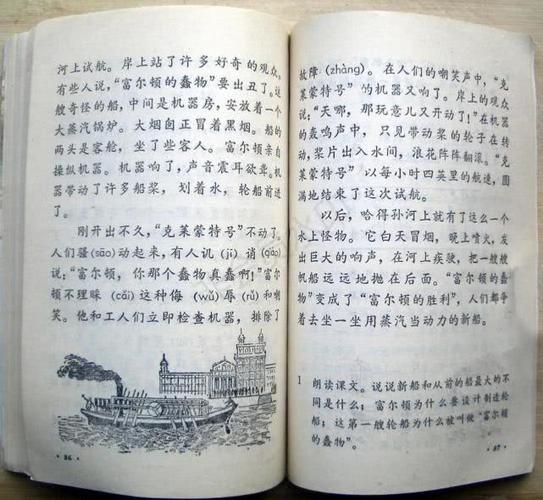 河上试航。岸上站了许多好奇的观众。
有些人说，“富尔顿的蠢物”要出丑了。这
艘奇怪的船，中间是机器房，安放着一个
大蒸汽锅炉。大烟囱正冒着黑烟。船的
两头是客舱，坐了些客人。富尔顿亲自
操纵机器。机器响了，声音震耳欲聋。机
器带动了许多船桨，划着水，轮船前进
了。
刚开出不久，“克莱蒙特号”不动了。
人们骚(sāo)动起来，有人讥(jī)诮(qiào)
说：“富尔顿，你那个蠢物真蠢啊！”富尔
顿不理睬(cǎi)这种侮(wǔ)辱(rǔ)和嘲
笑。他和工人们立即检查机器，排除了
·86·
故障(zhàng)。在人们的嘲笑声中，“克
莱蒙特号”的机器又响了。岸上的观众
说：“天哪，那玩意儿又开动了！”在机器
的轰鸣声中，只见带动桨的轮子在转
动，桨片出入水间，浪花阵阵翻滚。“克
莱蒙特号”以每小时四英里的航速，圆
满地结束了这次试航。
以后，哈得孙河上就有了这么一个
水上怪物。它白天冒烟，晚上喷火，发
出巨大的响声，在河上疾驶，把一艘艘
帆船远远地抛在后面。“富尔顿的蠢
物”变成了“富尔顿的胜利”，人们都争
着去坐一坐用蒸汽当动力的新船。
1 朗读课文，说说新船和从前的船最大的不
同是什么；富尔顿为什么要设计制造轮
船；这第一艘轮船为什么被叫做“富尔顿
的蠢物”。
·87·